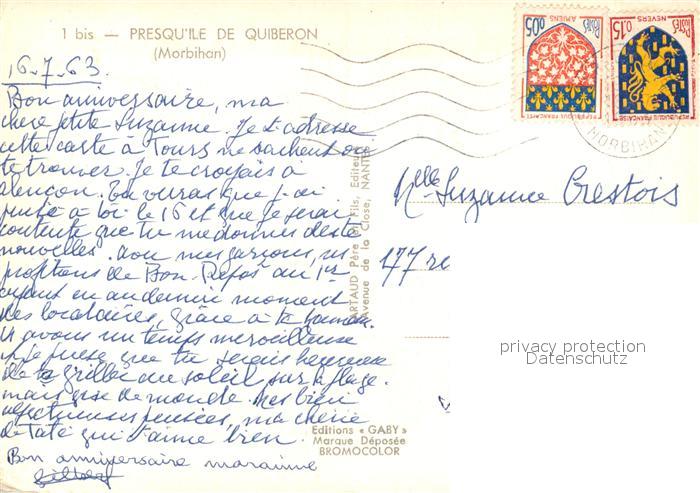 1 bis — PRESQU'ILE DE QUIBERON
(Morbihan)
16-7-63
Bon anniversaire, ma
chère petite Suzanne. Je t'adresse
cette carte à Tours ne sachant où
te trouver. Je te croyais à
Alençon. Tu vois que j'ai
pensé à toi le 16 et que je serai
contente que tu me donnes de tes
nouvelles. mes garçons,
profitons de Bon-Repos au 1er
en au dernier moment
des locataires, grâce à ta maman.
avons un temps merveilleux
je pense que tu serais heureuse
de te griller au soleil sur la plage.
mais que de monde. Mes bien
affectueuses pensées, ma chérie
de Taté qui t'aime bien.
Bon anniversaire marraine
Gilbert
ARTAUD Père et Fils, Editeurs
Avenue de la Close, NANTES
Editions « GABY »
Marque Déposée
BROMOCOLOR
0,05 POSTES
AMIENS
REPUBLIQUE FRANÇAISE
POSTES 0,15
NEVERS
REPUBLIQUE FRANÇAISE
MORBIHAN
Mlle Suzanne Crestois
177
privacy protection
Datenschutz